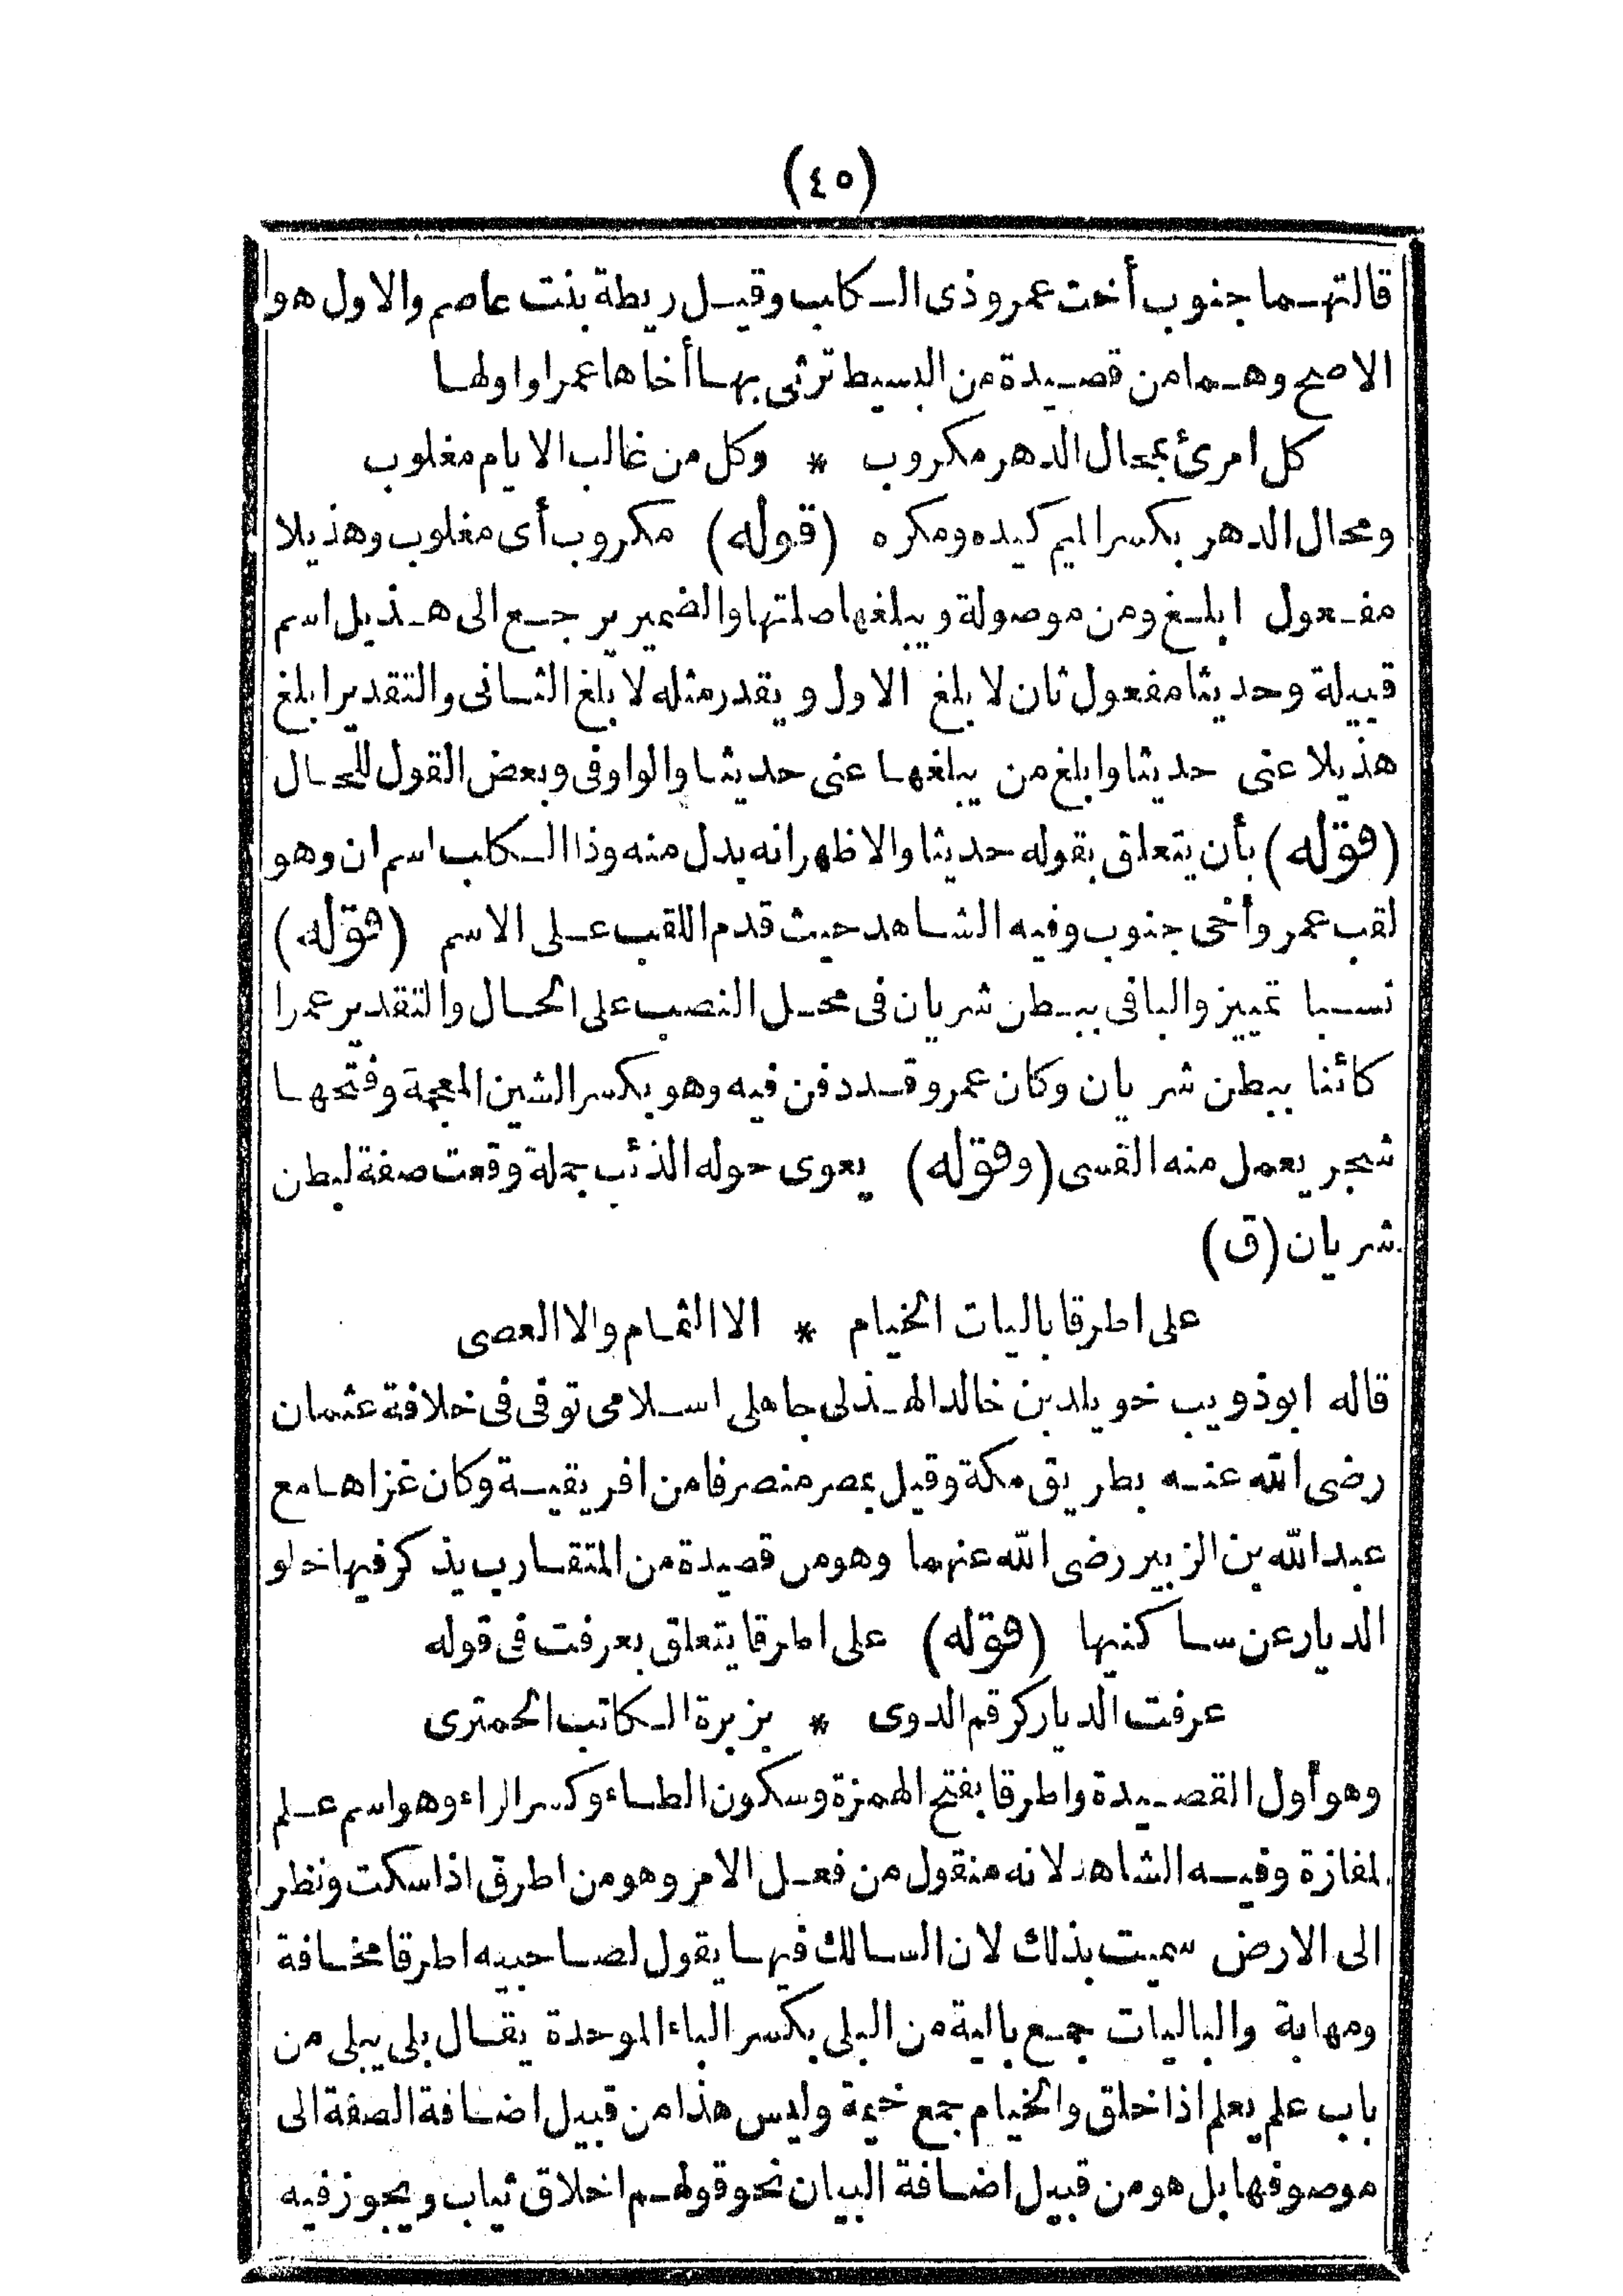 (٤٥)
قالتهما جنوب أخت عمرو ذى الكاب وقيل ريطة بنت عاصم والاول هوا
الاصح وهما من قصيدة من البسيط ترثى بها أخاها عمرا واولها
كل امرئ بمحال الدهر مكروب * وكل من غالب الايام مغلوب
ومحال الدهر بكسر الميم كيده ومكره (قوله) مكروب أى مغلوب وهذيلا
مفعول ابلغ ومن موصولة ويبلغها صلتها والضمير يرجع الى هذيل اسم
قبيلة وحديثا مفعول ثان لابلغ الاول ويقدر مثله لابلغ الثانى والتقدير ابلغ
هذيلا عنى حديثا وابلغ من يبلغها عنى حديثا والواو فى وبعض القول للحال
(قوله) بأن يتعلق بقوله حديثا والاظهر انه بدل منه وذا الكاب اسم ان وهو
لقب عمرو أخى جنوب وفيه الشاهد حيث قدم اللقب على الاسم (قوله)
نسبا تمييز والباقى ببطن شريان فى محل النصب على الحال والتقدير عمرا
كائنا ببطن شريان وكان عمرو قد دفن فيه وهو بكسر الشين المعجمة وفتحها
شجر يعمل منه القسى (وقوله) يعوى حوله الذئب جملة وقعت صفة لبطن
شريان (ق)
على اطرقا باليات الخيام * الا الثمام والا العصى
قاله ابو ذويب خويلد بن خالد الهذلى جاهلى اسلامى توفى فى خلافة عثمان
رضى الله عنه بطريق مكة وقيل بمصر منصرفا من افريقية وكان غزاها مع
عبد الله بن الزبير رضى الله عنهما وهو من قصيدة من المتقارب يذكر فيها خلو
الديار عن ساكنيها (قوله) على اطرقا يتعلق بعرفت فى قوله
عرفت الديار كرقم الدوى * يزبرة الكاتب الحمترى
وهو أول القصيدة واطرقا بفتح الهمزة وسكون الطاء وكسر الراء وهو اسم علم
لمفازة وفيه الشاهد لانه منقول من فعل الامر وهو من اطرق اذا سكت ونظر
الى الارض سميت بذلك لان السالك فيها يقول لصاحبيه اطرقا مخافة
ومهابة والباليات جمع بالية من البلى بكسر الباء الموحدة يقال بلى يبلى من
باب علم يعلم اذا خلق والخيام جمع خيمة وليس هذا من قبيل اضافة الصفة الى
موصوفها بل هو من قبيل اضافة البيان نحو قولهم اخلاق ثياب ويجوز فيه